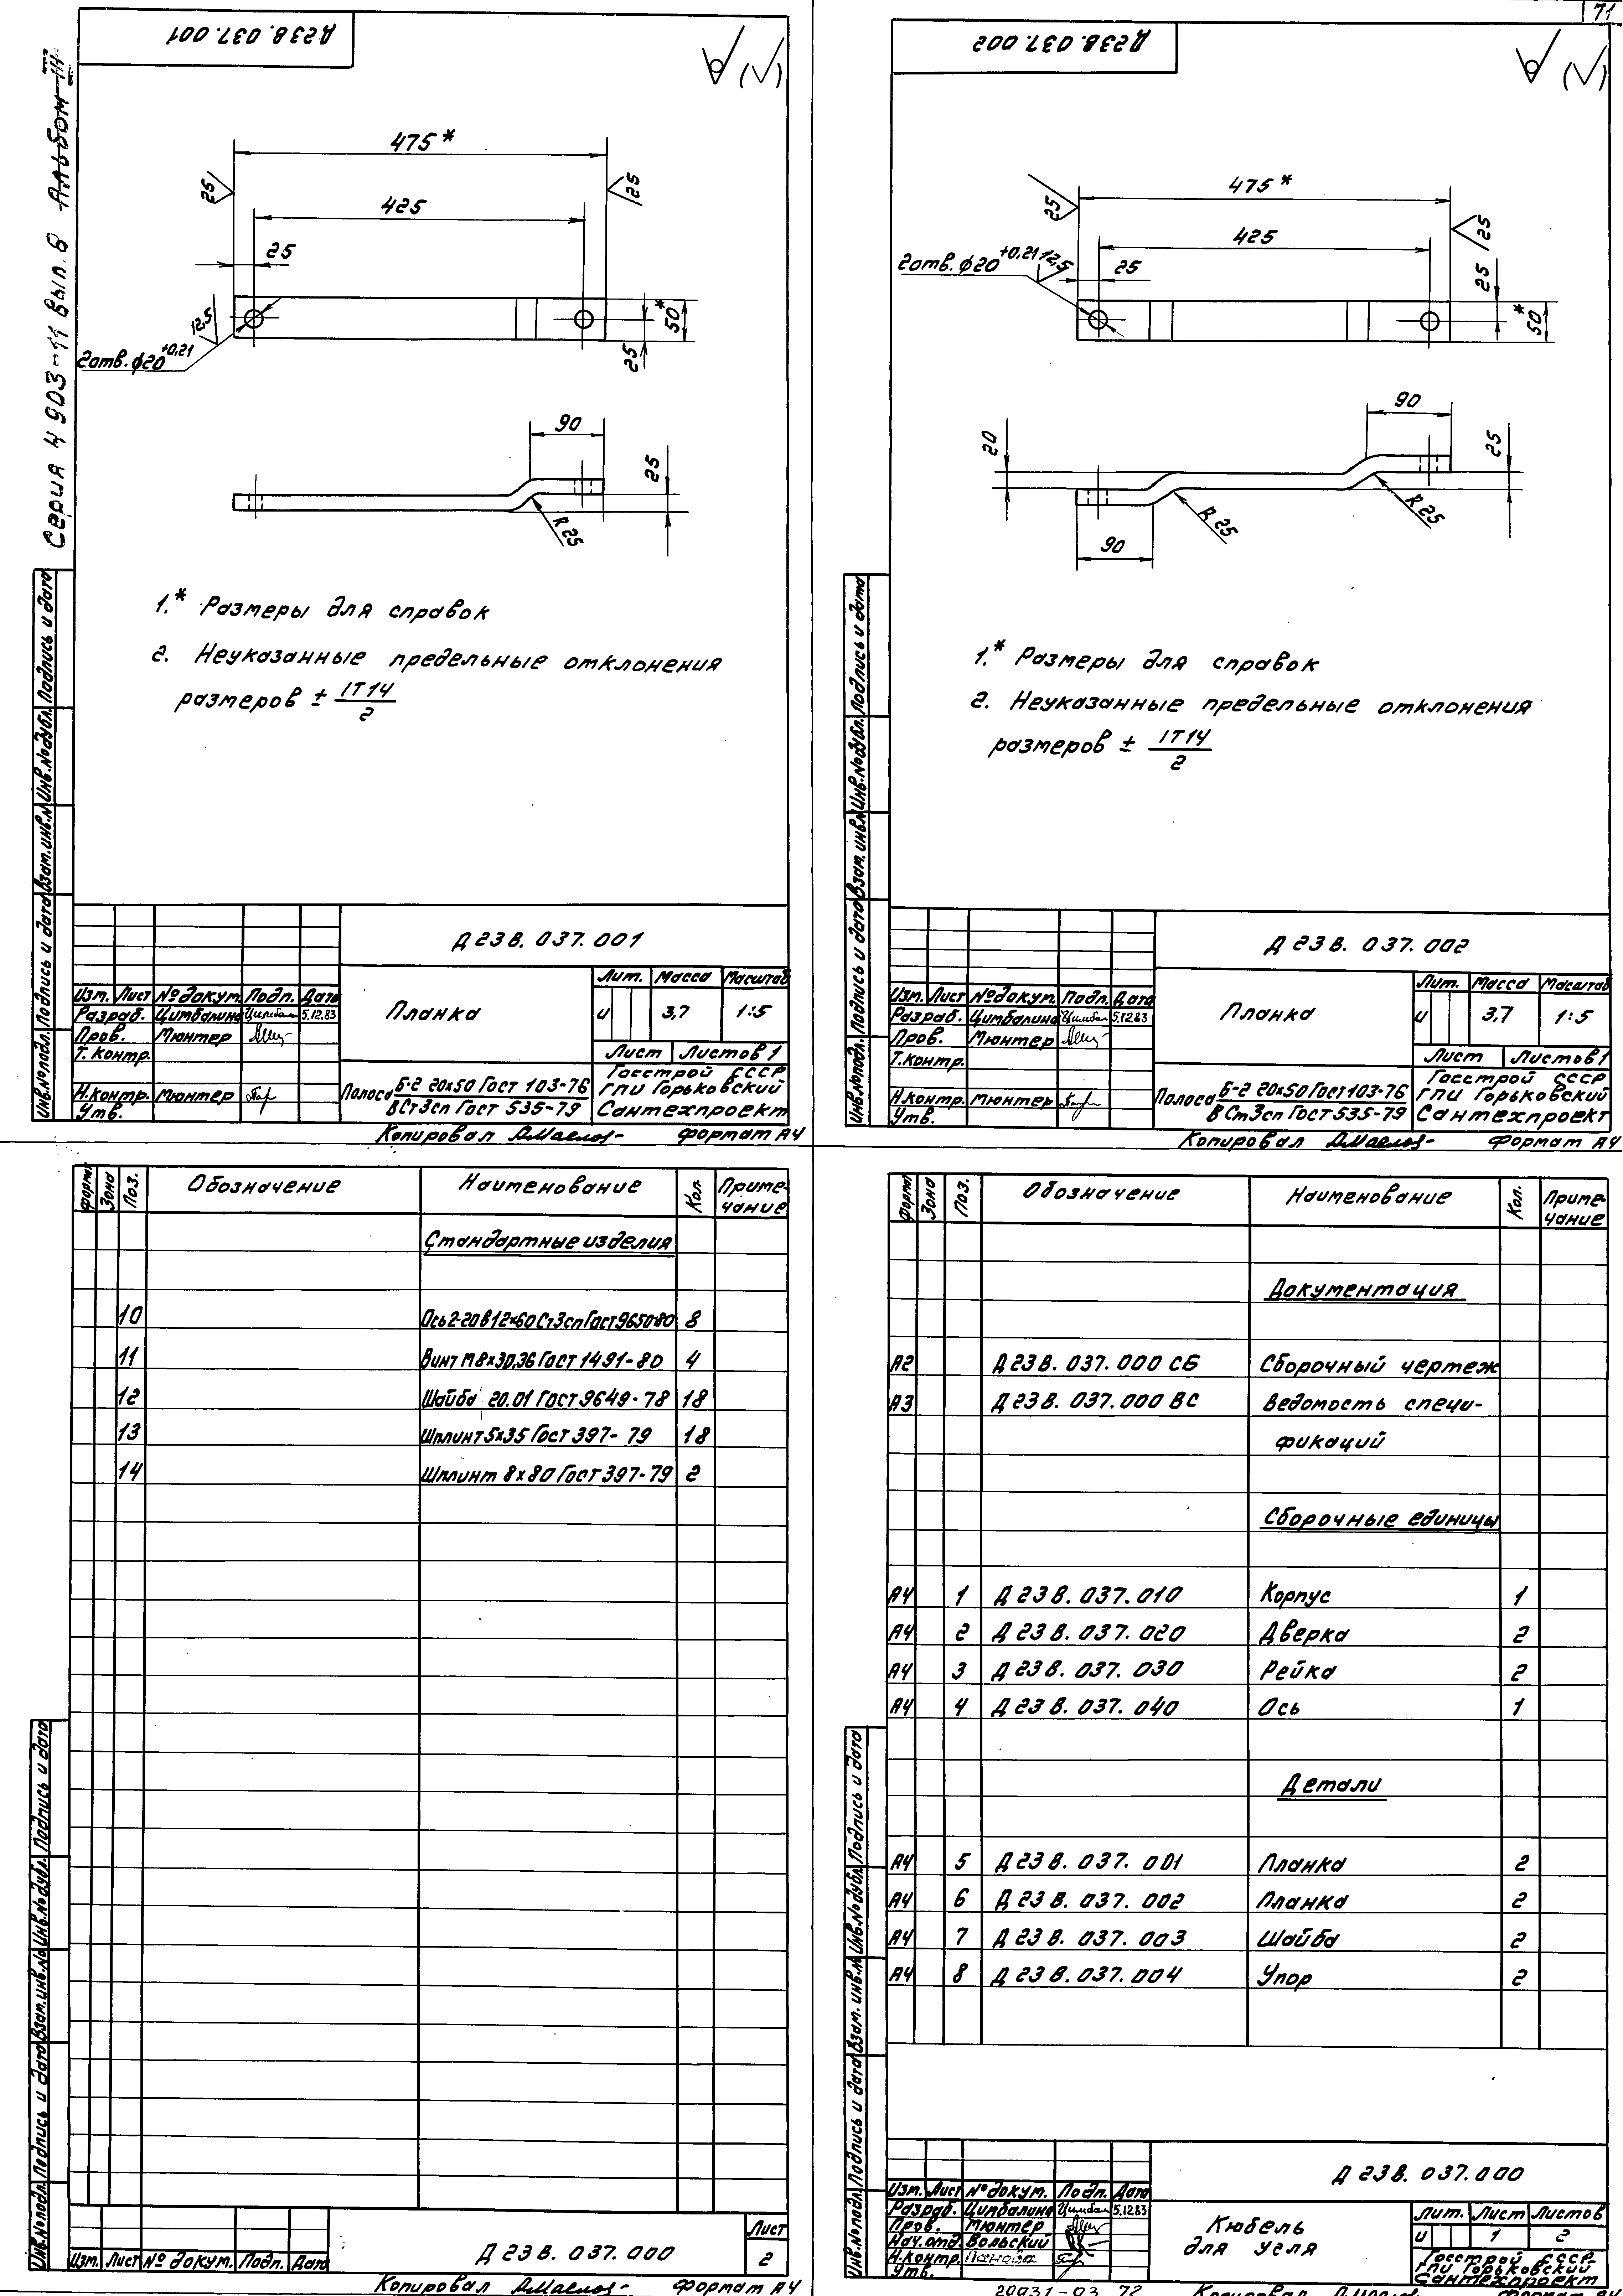 71
Серия 4 903-11 Вып. 8 Альбом III
Д23В.037.001
475*
425
25
25
25
12,5
2отв. ф20 +0,21
50*
25
90
25
R25
1.* Размеры для справок
2. Неуказанные предельные отклонения
размеров ± IT14
2
Инв.№подл. Подпись и дата Взам.инв.№ Инв.№дубл. Подпись и дата
Д 23 В. 037. 001
Изм. Лист №докум. Подп. Дата
Разраб. Цимбалина 5.12.83
Пров. Мюнтер
Т.контр.
Н.контр. Мюнтер
Утв.
Планка
Лит. Масса Масштаб
и 3,7 1:5
Лист Листов 1
Полоса Б-2 20х50 Гост 103-76
ВСт3сп Гост 535-79
Госстрой СССР
ГПИ Горьковский
Сантехпроект
Копировал Формат А4
Д23В.037.002
475*
425
25
25
25
2отв. ф20 +0,21 12,5
25
50*
90
20
25
R25
R25
90
1.* Размеры для справок
2. Неуказанные предельные отклонения
размеров ± IT14
2
Инв.№подл. Подпись и дата Взам.инв.№ Инв.№дубл. Подпись и дата
Д 23 В. 037. 002
Изм. Лист №докум. Подп. Дата
Разраб. Цимбалина 5.12.83
Пров. Мюнтер
Т.контр.
Н.контр. Мюнтер
Утв.
Планка
Лит. Масса Масштаб
и 3,7 1:5
Лист Листов 1
Полоса Б-2 20х50 Гост 103-76
ВСт3сп Гост 535-79
Госстрой СССР
ГПИ Горьковский
Сантехпроект
Копировал Формат А4
Форм. Зона Поз. Обозначение Наименование Кол. Примечание
Стандартные изделия
10 Ось 2-20В12х60 Ст3сп Гост 9650-80 8
11 Винт М8х30.36 Гост 1491-80 4
12 Шайба 20.01 Гост 9649-78 18
13 Шплинт 5х35 Гост 397-79 18
14 Шплинт 8х80 Гост 397-79 2
Инв.№подл. Подпись и дата Взам.инв.№ Инв.№дубл. Подпись и дата
Изм. Лист № докум. Подп. Дата
Д 23 В. 037. 000
Лист
2
Копировал Формат А4
Форм. Зона Поз. Обозначение Наименование Кол. Примечание
Документация
А2 Д 23 В. 037. 000 СБ Сборочный чертеж
А3 Д 23 В. 037. 000 ВС Ведомость специ-
фикаций
Сборочные единицы
А4 1 Д 23 В. 037. 010 Корпус 1
А4 2 Д 23 В. 037. 020 Дверка 2
А4 3 Д 23 В. 037. 030 Рейка 2
А4 4 Д 23 В. 037. 040 Ось 1
Детали
А4 5 Д 23 В. 037. 001 Планка 2
А4 6 Д 23 В. 037. 002 Планка 2
А4 7 Д 23 В. 037. 003 Шайба 2
А4 8 Д 23 В. 037. 004 Упор 2
Инв.№подл. Подпись и дата Взам.инв.№ Инв.№дубл. Подпись и дата
Д 23В. 037.000
Изм. Лист № докум. Подп. Дата
Разраб. Цимбалина 5.12.83
Пров. Мюнтер
Нач.отд. Вольский
Н.контр. Панова
Утв.
Кюбель
для угля
Лит. Лист Листов
и 1 2
Госстрой СССР
ГПИ Горьковский
Сантехпроект
20931-03 72
Копировал Формат А4